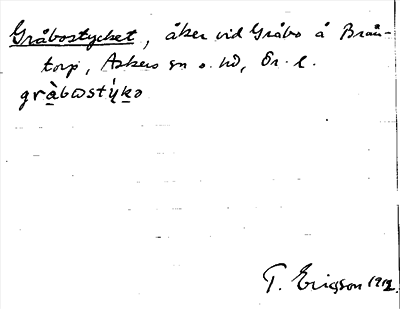 Gråbostycket, åker vid Gråbo å Brån-
torp, Askers sn o. hd, Ör. l.
gràbωstýkə
T. Ericson 1912.